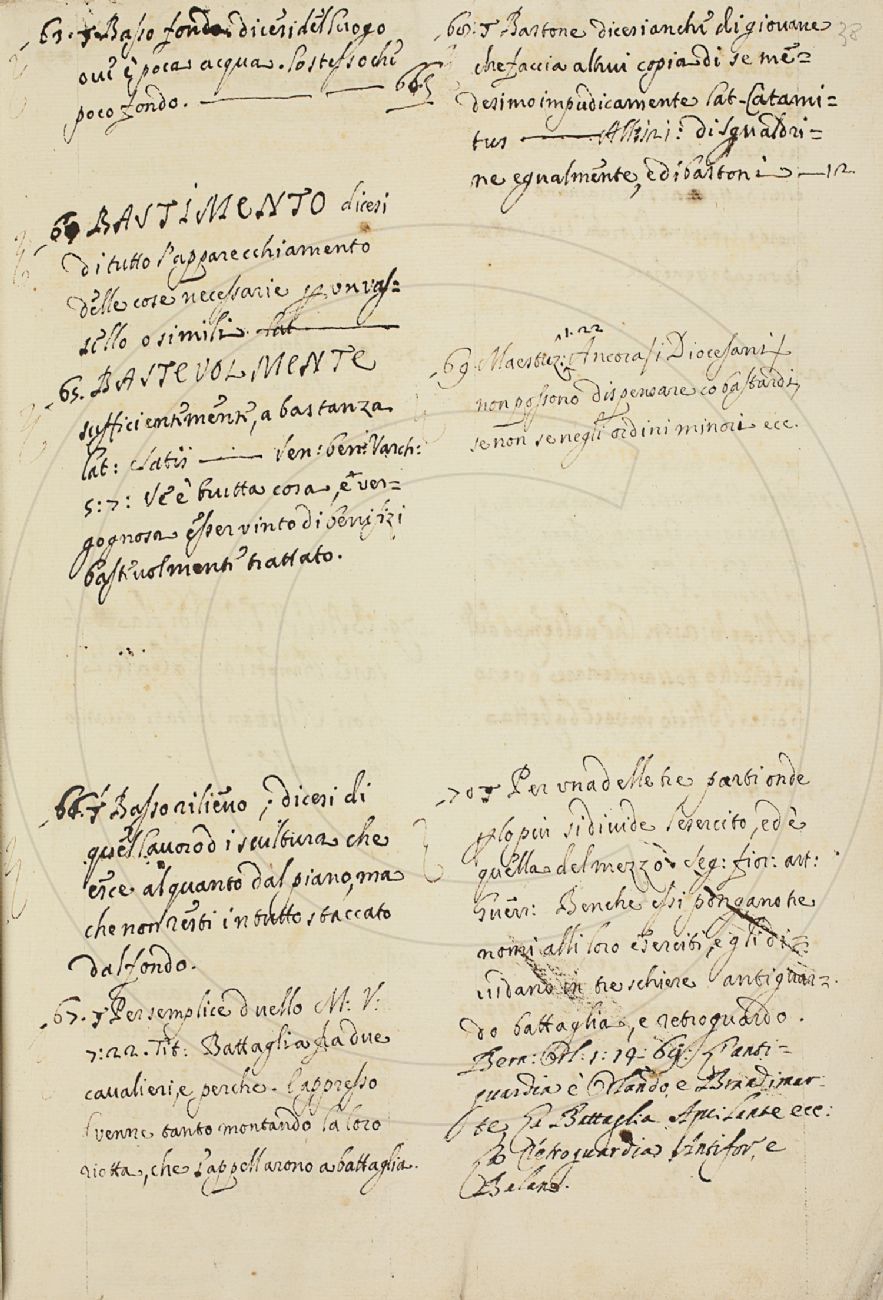 63. § Basso fondo. dicesi del luogo
ove è poca acqua. lo stesso che
poco fondo.
64 BASTIMENTO dicesi
di tutto l'apparecchiamento
delle cose necessarie p un vas=
sello o simili. lat
65. BASTEVOLMENTE
sufficientemente, a bastanza
lat: satis Sen: ben: Varch:
5: 7: Se è brutta cosa, e ver=
gognosa esser vinto di benifizi
bastevolmente trattato.
66. § Basso rilievo; dicesi di
quel lavoro di scultura che
esce alquanto dal piano, ma
che non resti in tutto staccato
dal fondo.
67. § Per semplice duello M: V:
7: 22. Tit: Battaglia fra due
cavalieri, e perche. E appresso
venne tanto montando la loro
riotta, che s'appellarono a battaglia.
38
68. § Bastone dicesi anche di giovane
che faccia altrui copia di se me=
desimo impudicamente lat. Catami=
tus di sgualdri=
ne egualmente, e di bastoni 12
69. Maestruz: 1. 22 Ancora si Diocesani
non possono dispensare co bastardi,
se non se negli ordini minori ecc.
70 § Per una delle tre parti onde
p lo piu si divide l'esercito, ed è
quella del mezzo. Seg: fior: art:
Guerr: Benche essi pongano tre
nomi alli loro eserciti, e gli di=
vidano in tre schiere antiguar=
do battaglia, e retroguardo.
Bern: Orl: 1: 19: 69: L'anti=
guardia è Orlando, e Brandimar
te La Battaglia Aquilante ecc:
La Retroguardia Antifor, e
Balano.